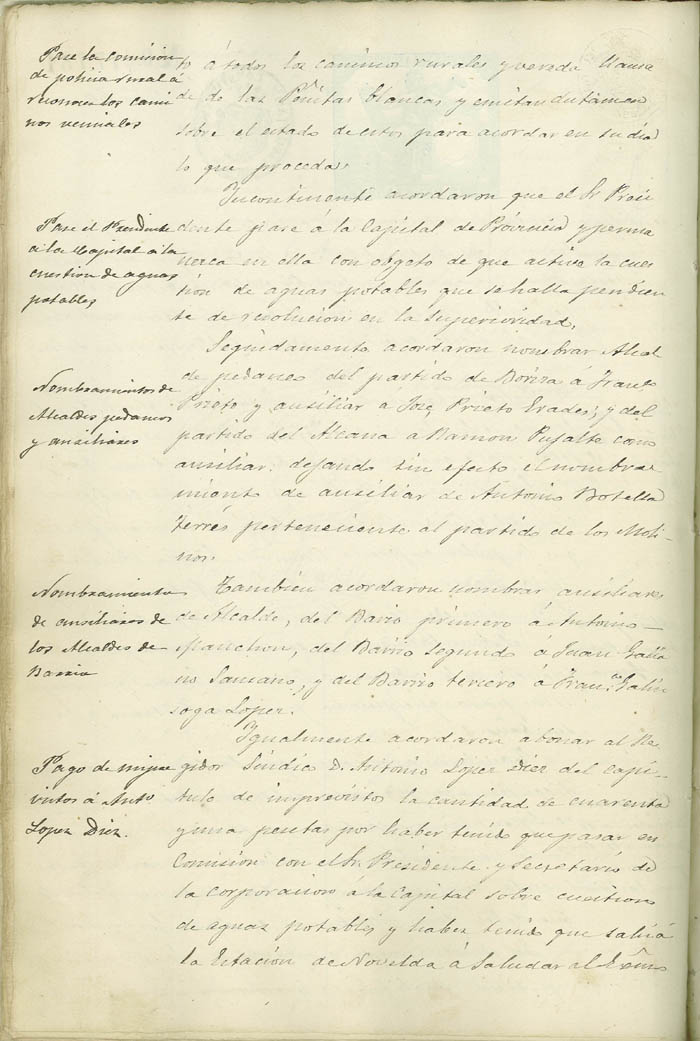 Pase la comision
de policia rural á
reconocer los cami
nos vecinales
to á todos los caminos rurales y vereda llama
de de las Peñitas blancas y emitan dictamen
sobre el estado de estos para acordar en su dia
lo que proceda.
Incontinente acordaron que el Sr Presi
Pase el Presidente
á la Capital á la
cuestion de aguas
potables
dente pase á la Capital de Provincia y perma
nezca en ella con objeto de que active la cues
tión de aguas potables que se halla pendien
te de resolucion en la superioridad.
Seguidamente acordaron nombrar Alcal
Nombramientos de
Alcaldes pedaneos
y ausiliares
de pedaneo del partido de à Franco
Prieto y ausiliar a José Prieto Erades; y del
partido del Alcana a Ramon Pujalte como
ausiliar: dejando sin efecto el nombra-
miento de ausiliar de Antonio Botella
Terrés perteneciente al partido de los Moli-
nos.
Nombramiento
de ausiliares de
los Alcaldes de
Barrio
También acordaron nombrar ausiliares
de Alcalde, del Bario primero á Antonio
Manchon, del Barrio segundo á Juan
no Soriano, y del Barrio tercero á Franco Galin
soga Lopez.
Igualmente acordaron abonar al Re
Pago de impre
vistos á Anto
Lopez Diez.
gidor Sindico D. Antonio Lopez Diez del capi-
tulo de imprevistos la cantidad de cuarenta
y una pesetas por haber tenido que pasar en
Comision con el Sr. Presidente y Secretario de
la corporacion a la Capital sobre cuestion
de aguas potables y haber tenido que salir á
la Estación de Novelda á saludar al Exmo